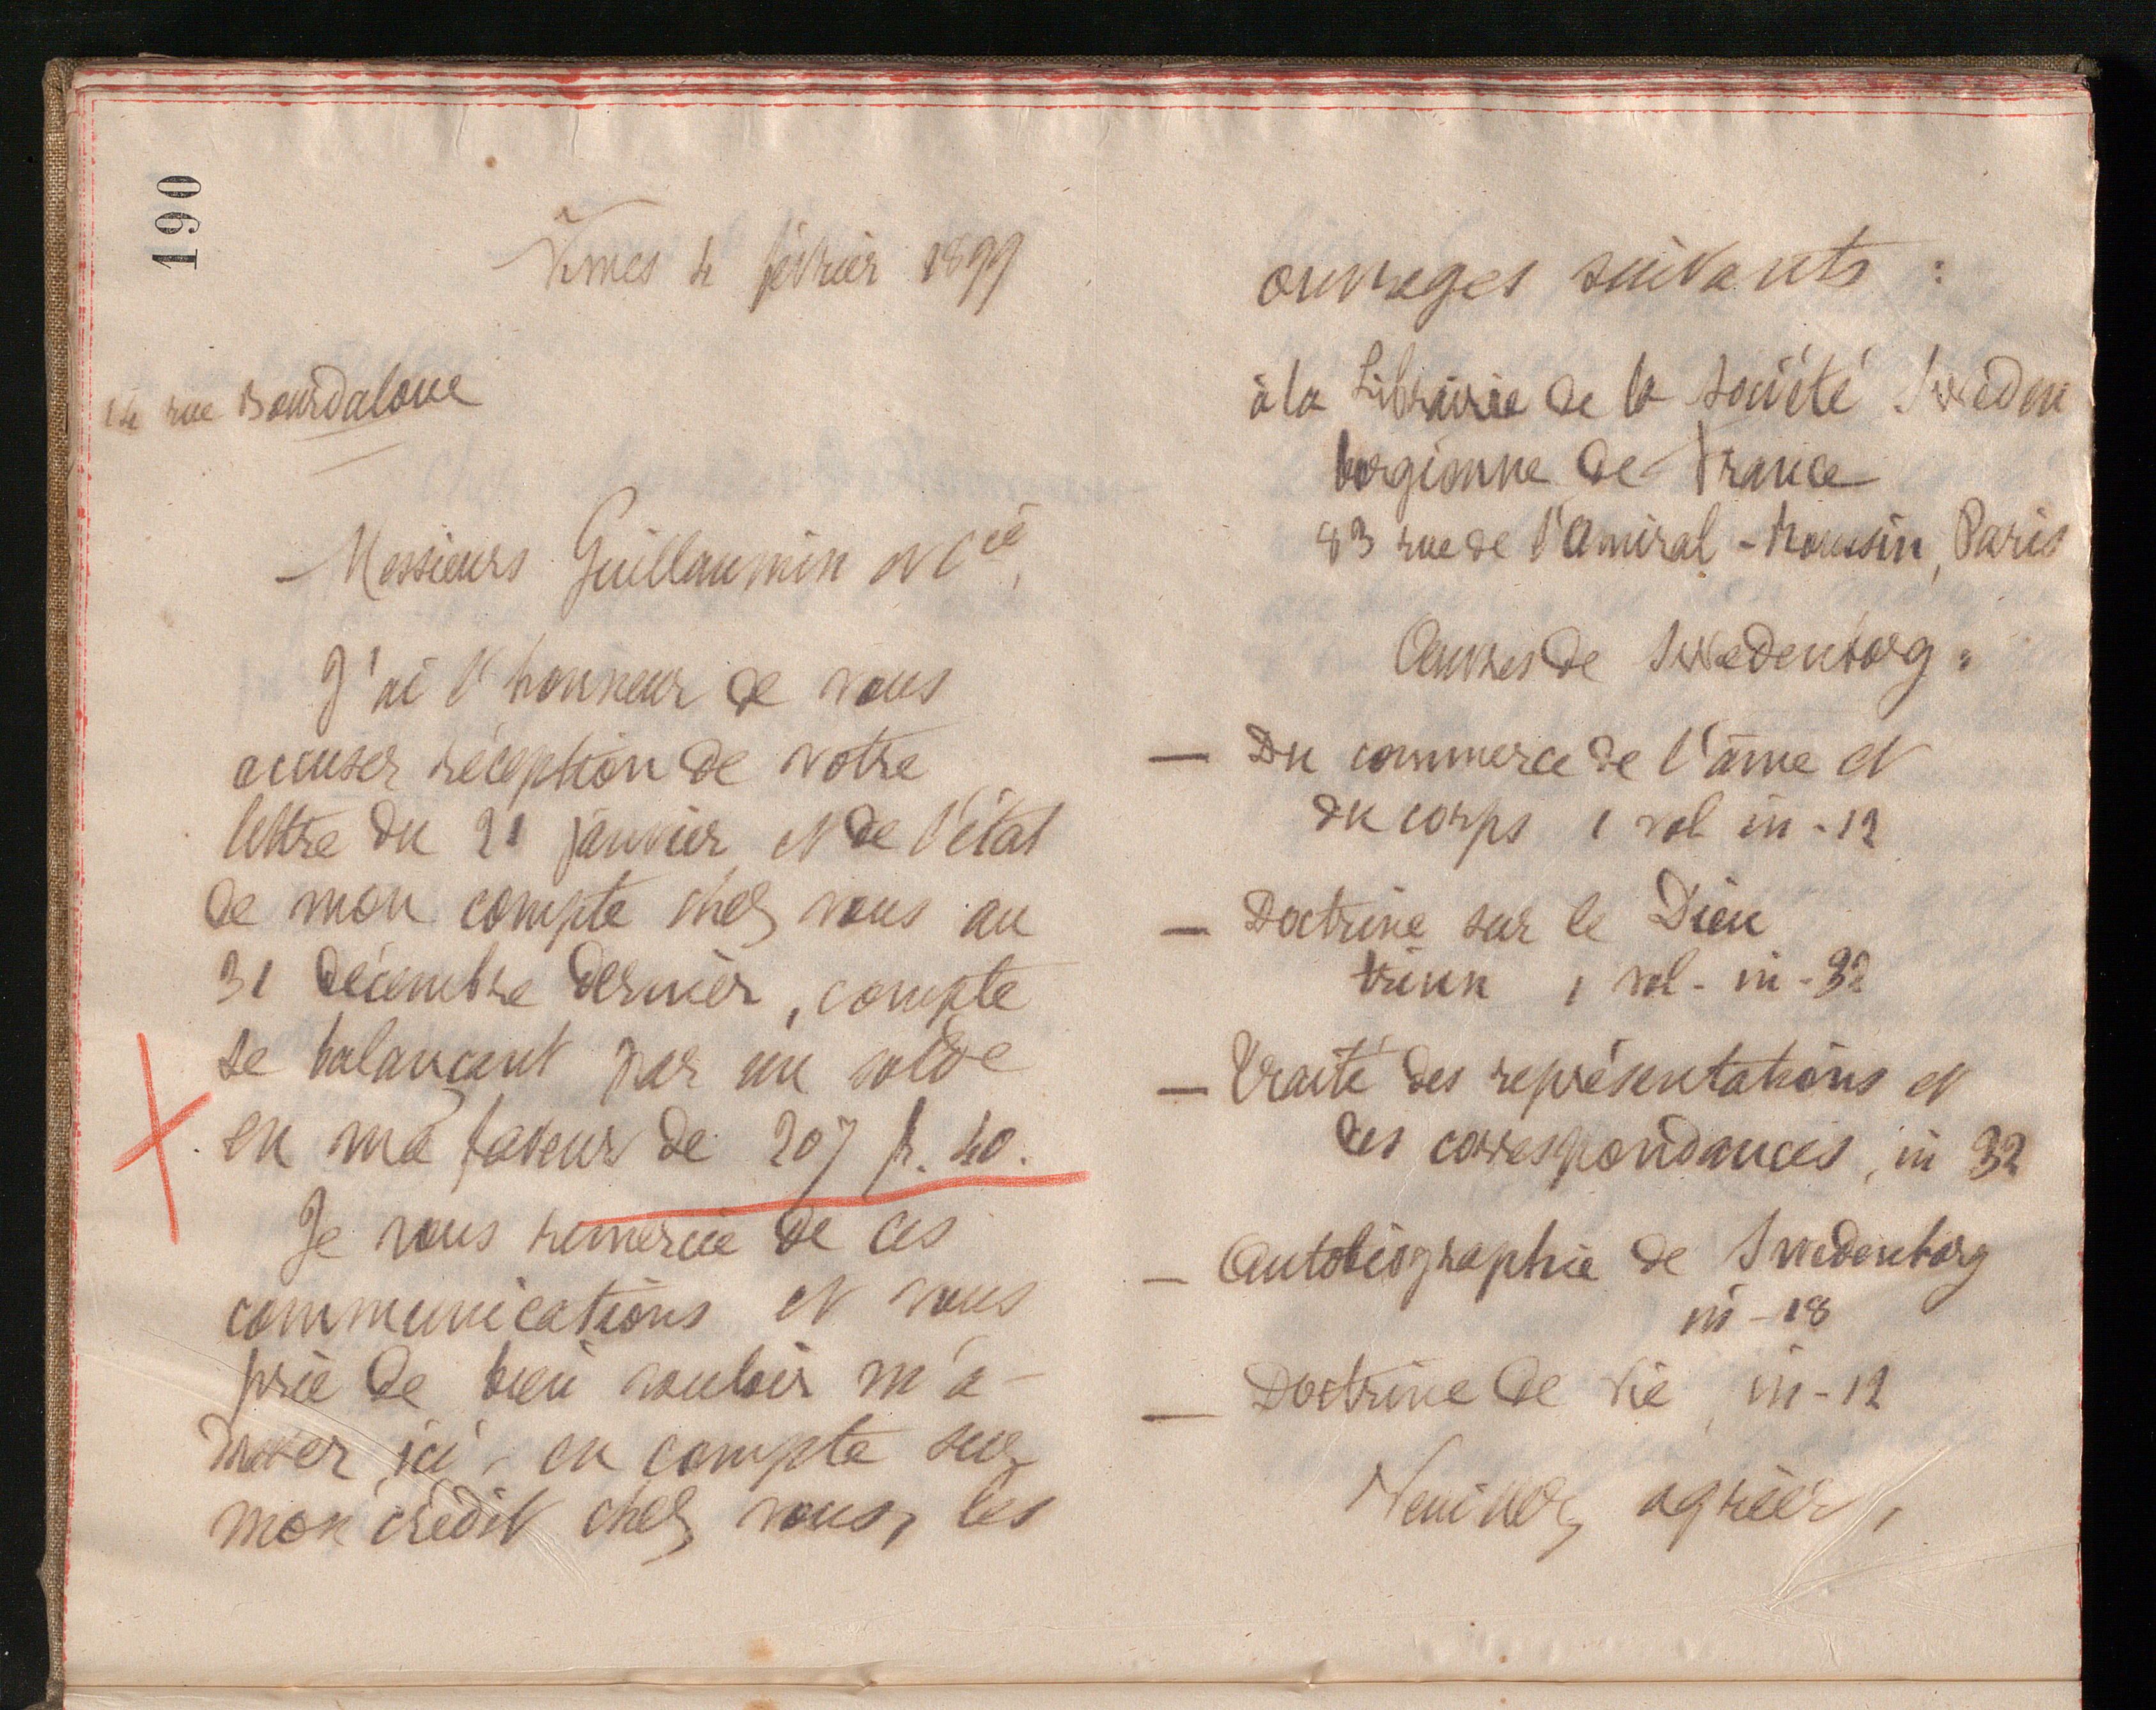 190
Nîmes 4 février 1899
14 rue Bourdaloue
- Messieurs Guillaumin et Cie,
J'ai l'honneur de vous
accuser réception de votre
lettre du 21 janvier et de l'état
de mon compte chez vous au
31 décembre dernier, compte
se balançant par un solde
en ma faveur de 207 f. 40.
Je vous remercie de ces
communications et vous
prie de bien vouloir m'a-
dresser ici, en compte sur
mon crédit chez vous, les
ouvrages suivants :
à la Librairie de la Société Sweden
borgienne de France
83 rue de l'Amiral-Roussin, Paris
Oeuvres de Swedenborg :
— Du commerce de l'âme et
du corps 1 vol in-12
— Doctrine sur le Dieu
triun 1 vol. in-32
— Traité des représentations et
des correspondances, in 32
— Autobiographie de Swedenborg
in-18
— Doctrine de vie, in-12
Veuillez agréer,